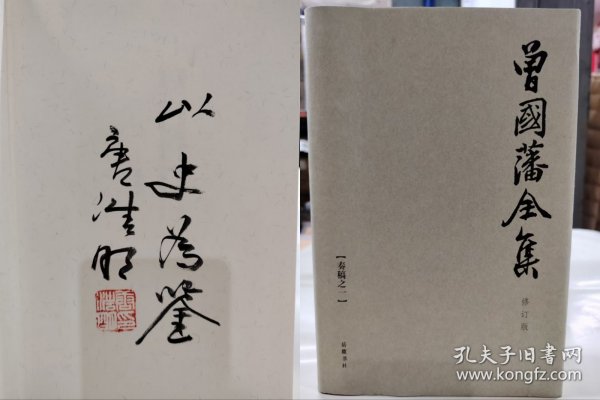 以史为鉴
唐浩明
曾國藩全集
修订版
【奏稿之一】
岳麓书社
孔夫子旧书网
www.kongfz.com